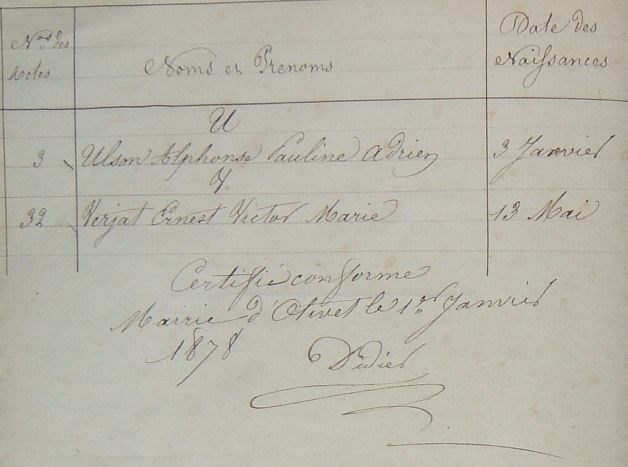 Nos des Actes | Noms et Prenoms | Date des Naissances
U
3 | Ulson Alphonse Pauline Adrien | 3 Janvier
V.
32 | Verjat Ernest Victor Marie | 13 Mai
Certifié conforme
Mairie d'Olivet le 1er Janvier
1878
Didier